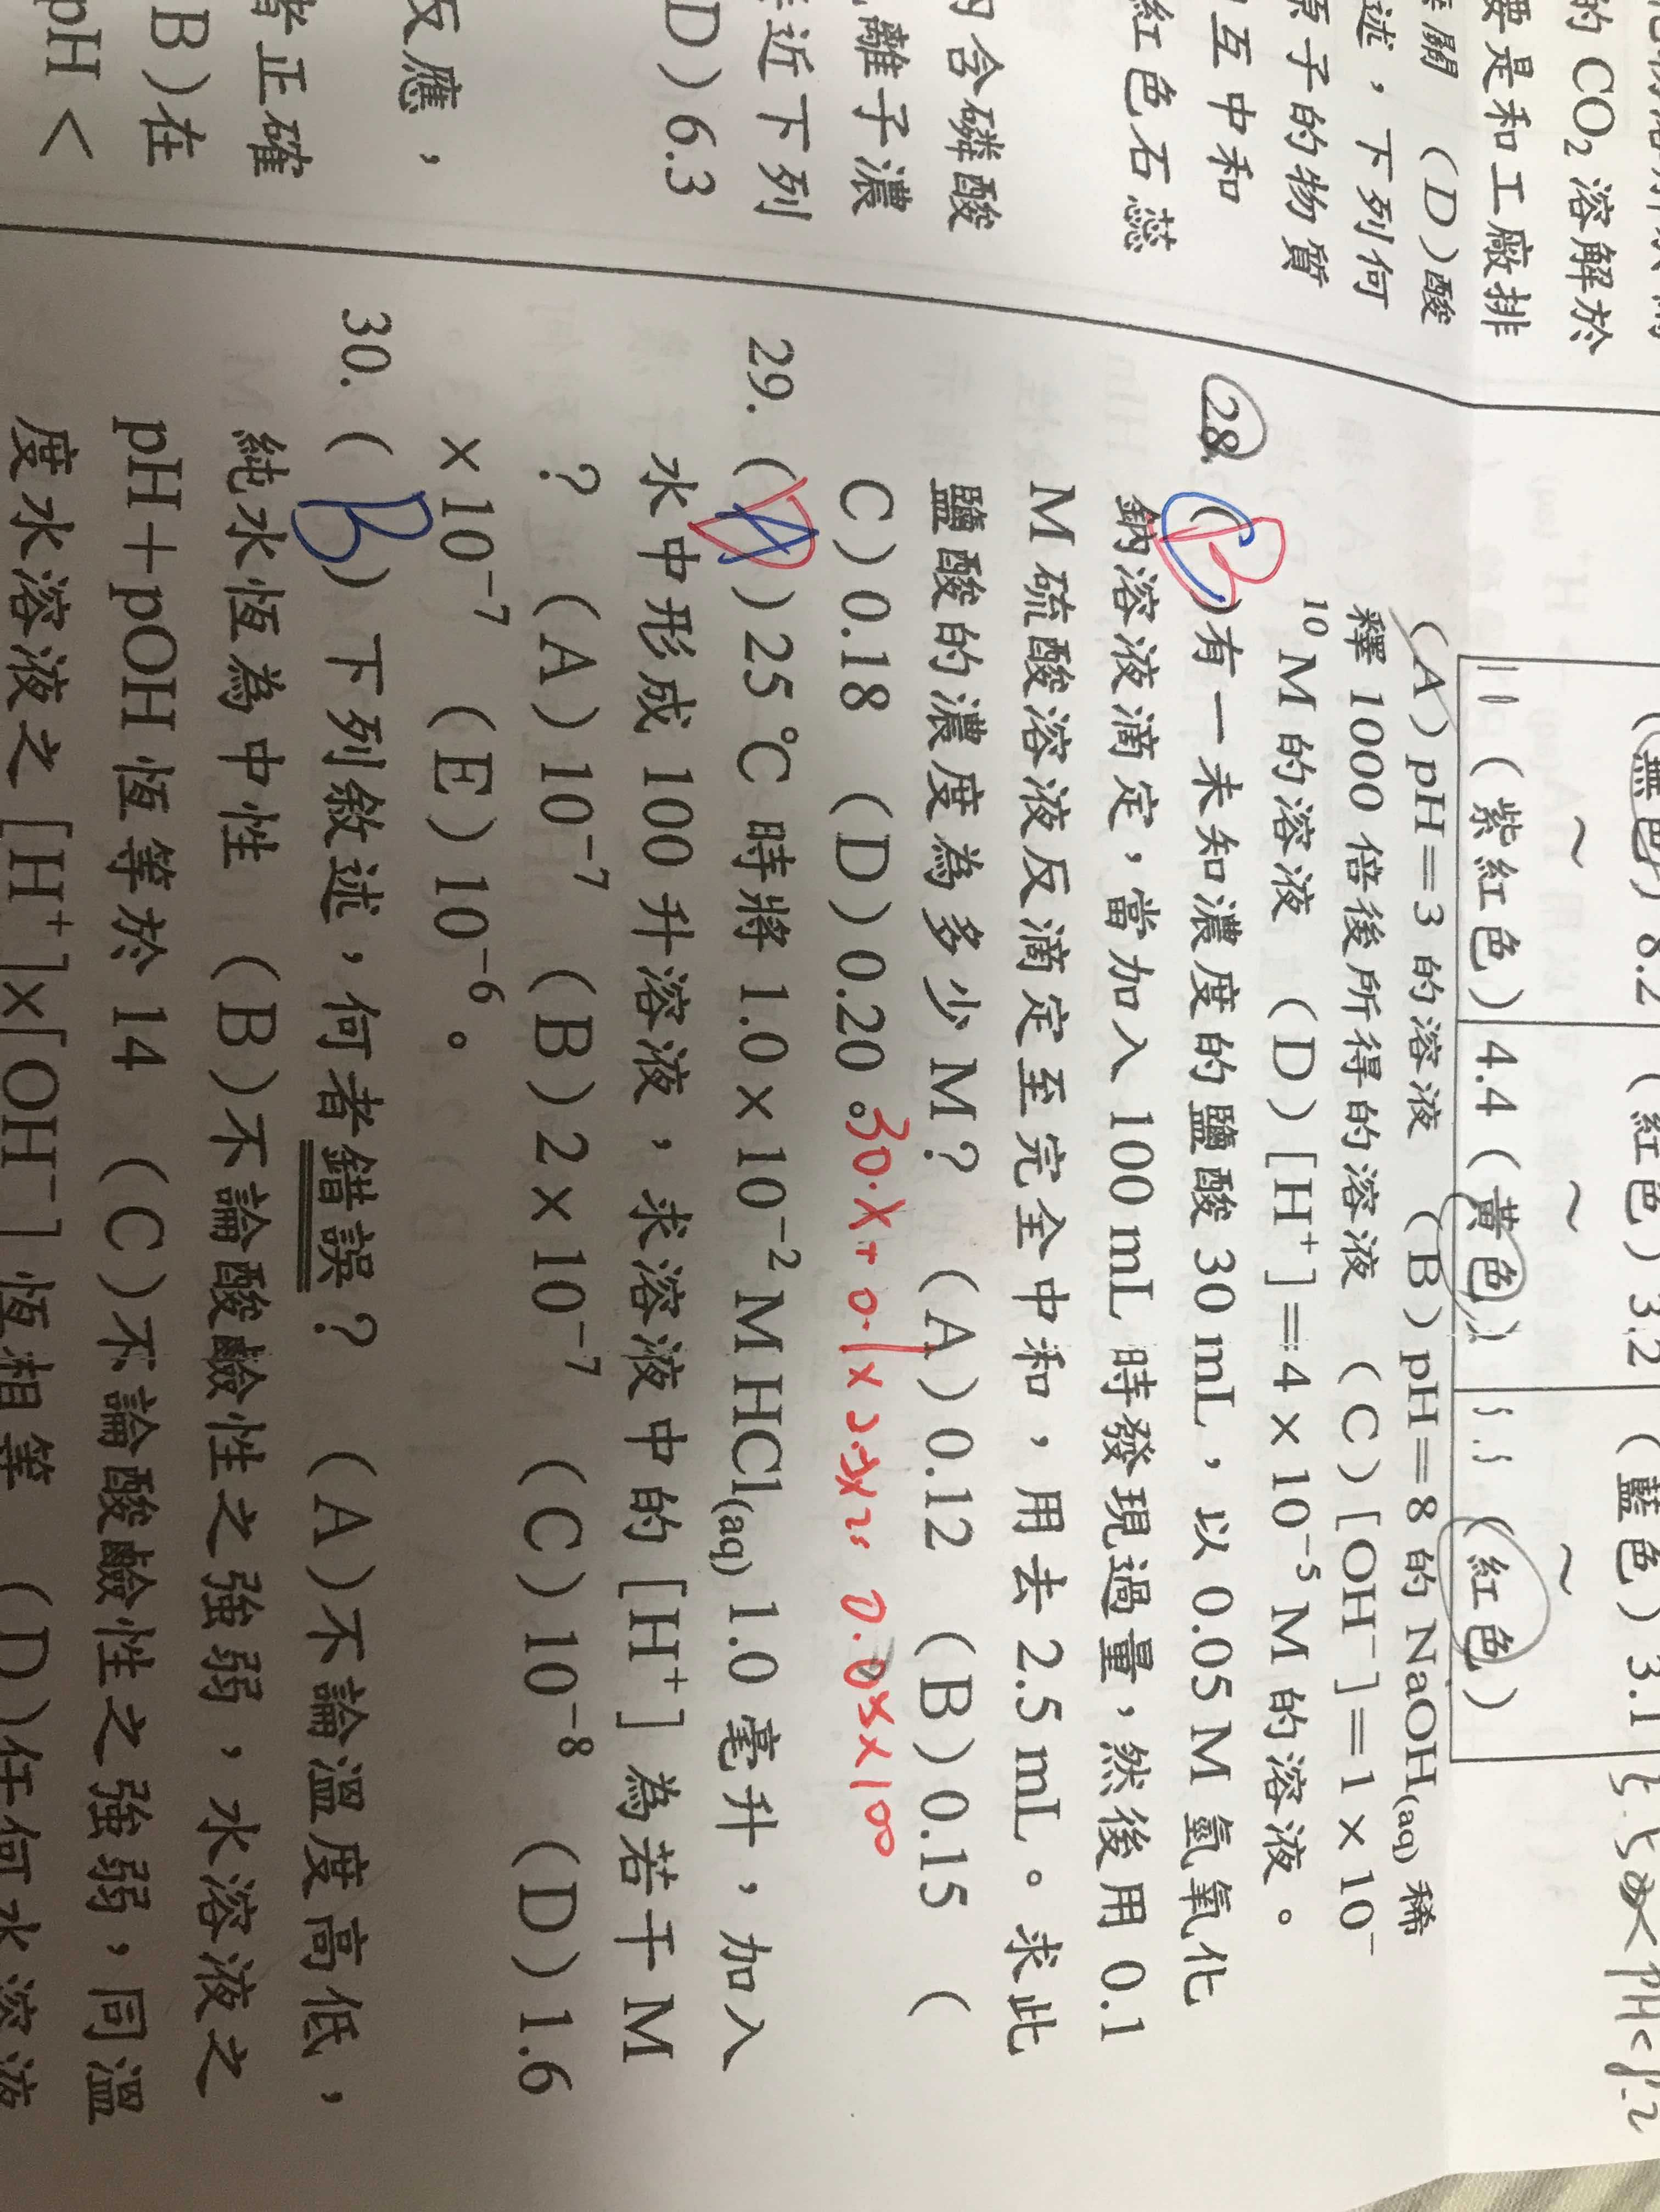 的 CO₂ 溶解於
要是和工廠排
關 (D)酸
述，下列何
原子的物質
互中和
紅色石蕊
內含磷酸
離子濃
近下列
D)6.3
反應，
者正確
B)在
pH <
(無色) 8.2 (紅色) 3.2 (藍色) 3.1
~ ~ ~
11 (紫紅色) 4.4 (黃色) 5.5 (紅色)
(A)pH＝3 的溶液 (B)pH＝8 的 NaOH(aq) 稀
釋 1000 倍後所得的溶液 (C)[OH⁻]＝1×10⁻
¹⁰ M 的溶液 (D)[H⁺]＝4×10⁻⁵ M 的溶液。
28. (B)有一未知濃度的鹽酸 30 mL，以 0.05 M 氫氧化
鈉溶液滴定，當加入 100 mL 時發現過量，然後用 0.1
M 硫酸溶液反滴定至完全中和，用去 2.5 mL。求此
鹽酸的濃度為多少 M？ (A)0.12 (B)0.15 (
C)0.18 (D)0.20。
30·X+0.1×2.5×2= 0.05×100
29. (A)25 ℃ 時將 1.0×10⁻² M HCl(aq) 1.0 毫升，加入
水中形成 100 升溶液，求溶液中的 [H⁺] 為若干 M
？ (A)10⁻⁷ (B)2×10⁻⁷ (C)10⁻⁸ (D)1.6
×10⁻⁷ (E)10⁻⁶。
30. (B)下列敘述，何者錯誤？ (A)不論溫度高低，
純水恆為中性 (B)不論酸鹼性之強弱，水溶液之
pH＋pOH 恆等於 14 (C)不論酸鹼性之強弱，同溫
度水溶液之 [H⁺]×[OH⁻] 恆相等 (D)任何水溶液